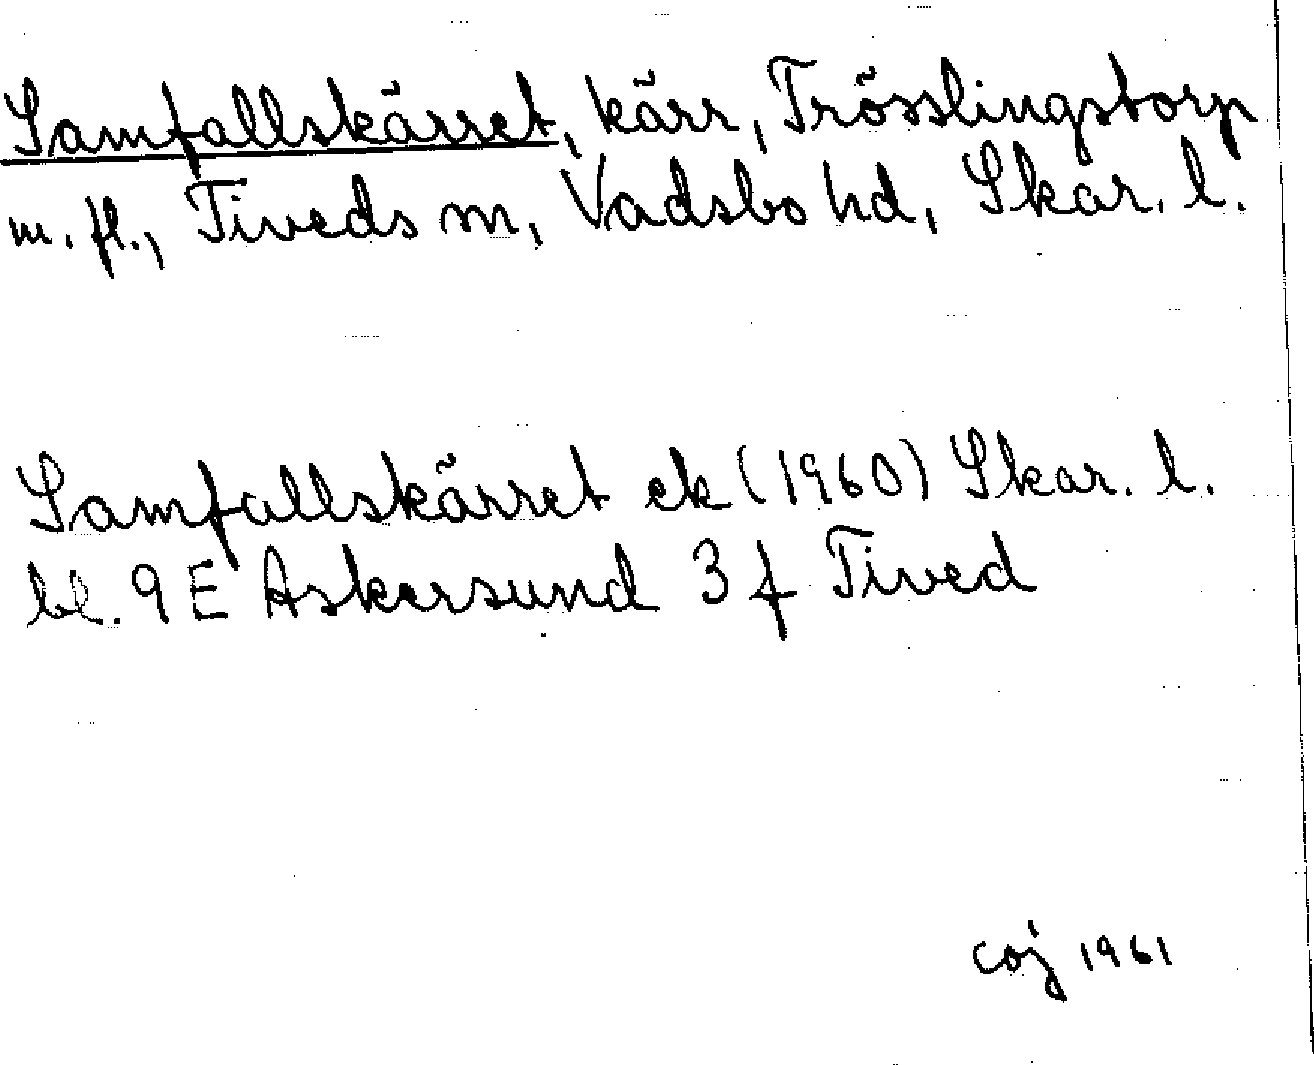 Samfallskärret, kärr, Trösslingstorp
m. fl., Tiveds sn, Vadsbo hd, Skar. l.
Samfallskärret ek (1960) Skar. l.
bl. 9E Askersund 3 f Tived
coj 1961